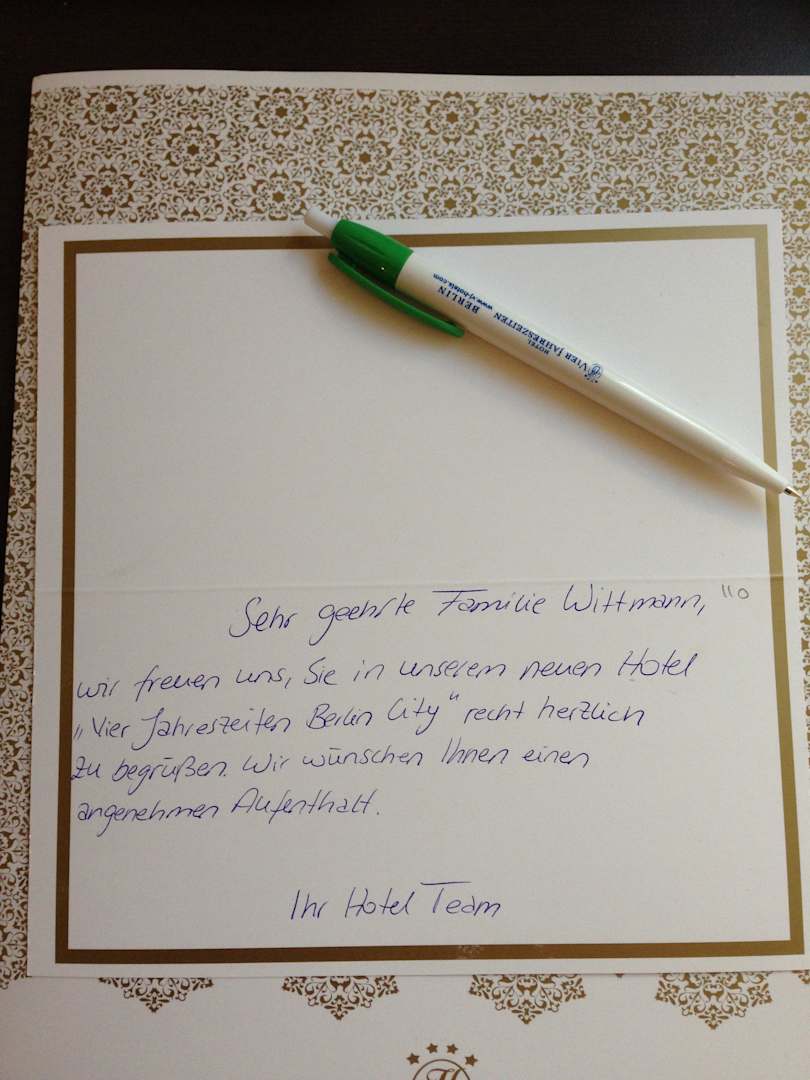 HOTEL
VIER JAHRESZEITEN
BERLIN
www.vj-hotels.com
Sehr geehrte Familie Wittmann,
wir freuen uns, Sie in unserem neuen Hotel
„Vier Jahreszeiten Berlin City“ recht herzlich
zu begrüßen. Wir wünschen Ihnen einen
angenehmen Aufenthalt.
Ihr Hotel Team